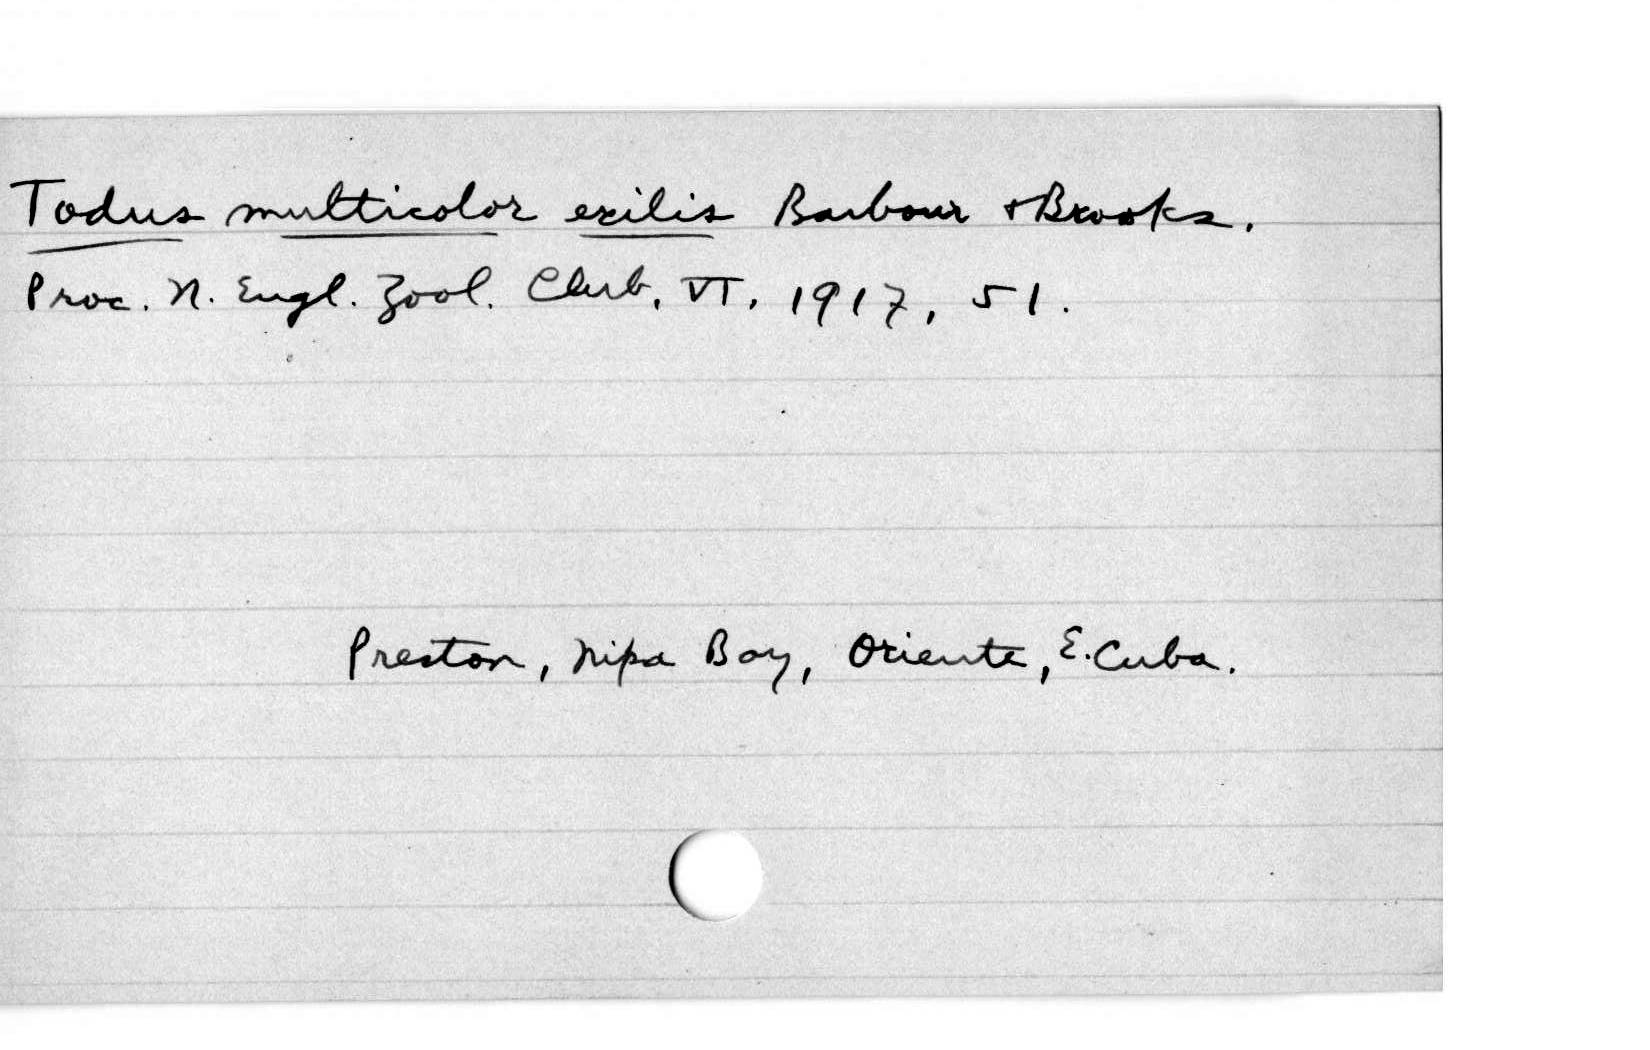 Todus multicolor exilis Barbour & Brooks.
Proc. N. Engl. Zool. Club, VI, 1917, 51.
Preston, Nipa Bay, Oriente, E. Cuba.